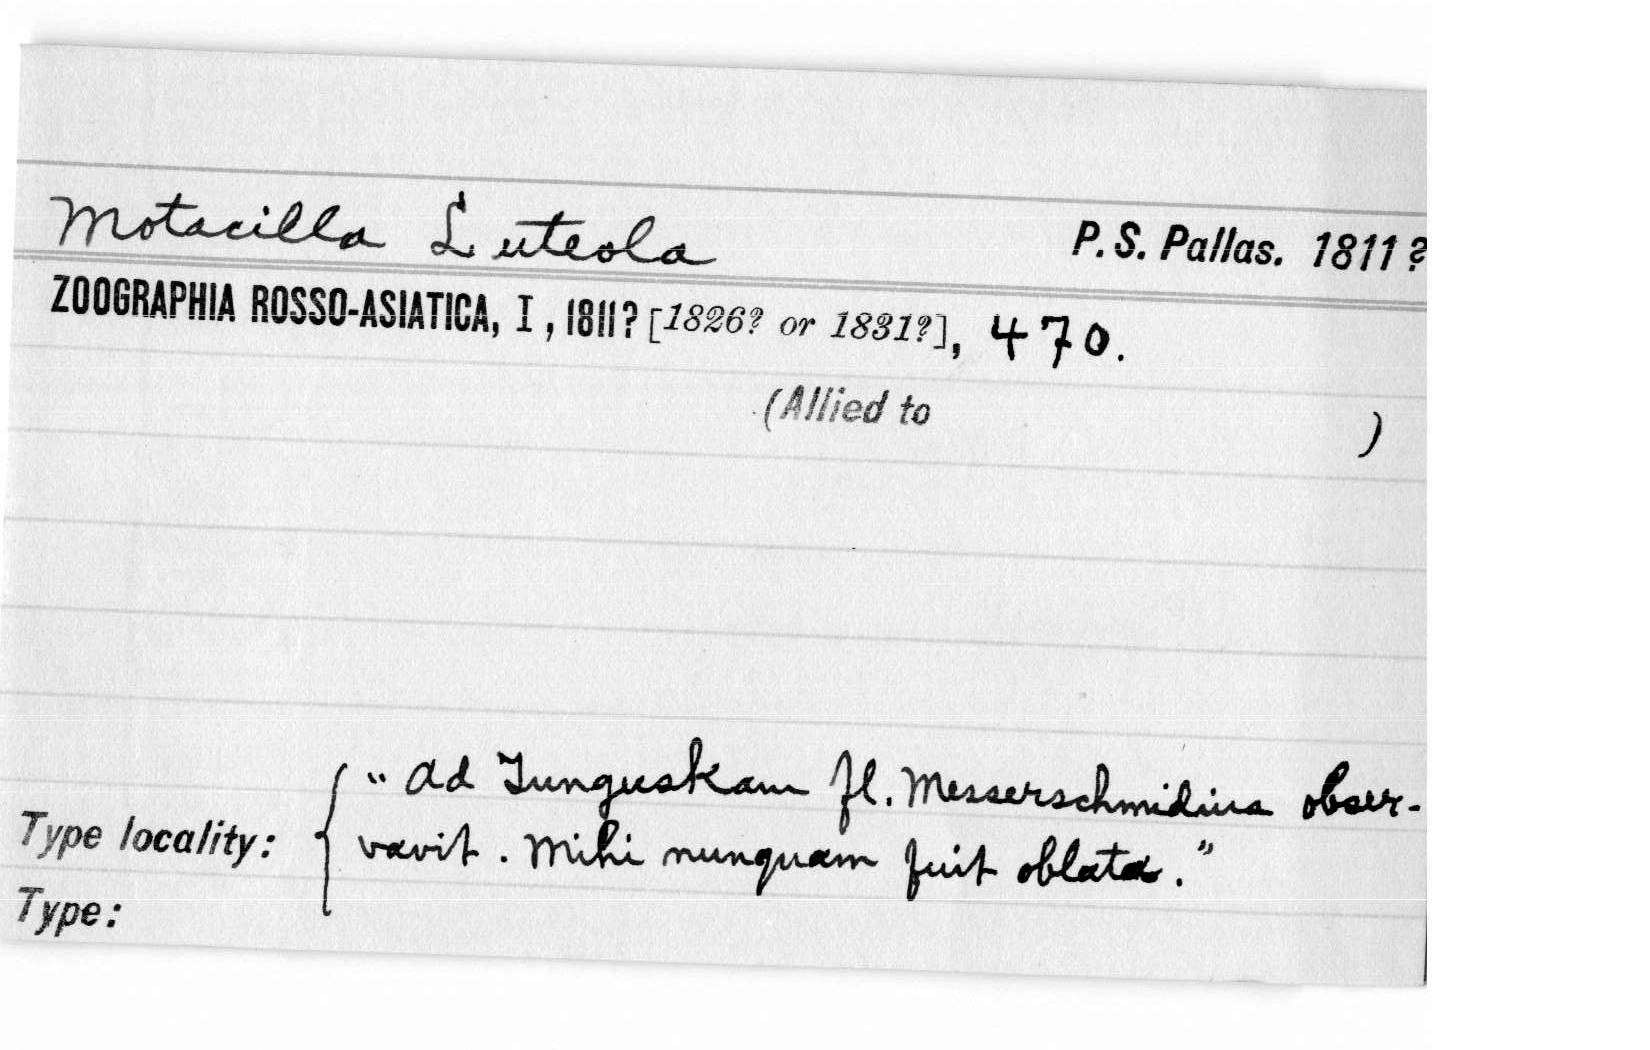 Motacilla Luteola P. S. Pallas. 1811?
ZOOGRAPHIA ROSSO-ASIATICA, I, 1811? [1826? or 1831?], 470.
(Allied to )
"Ad Tunguskam fl. Messerschmidius obser-
Type locality: { vavit. Mihi nunquam fuit oblata."
Type: